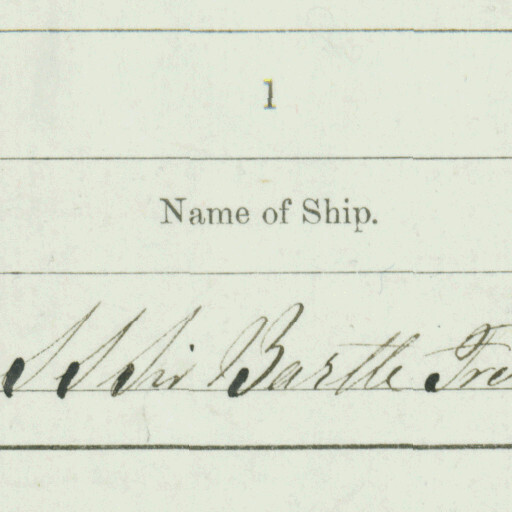 1
Name of Ship.
SS Sir Bartle Fre